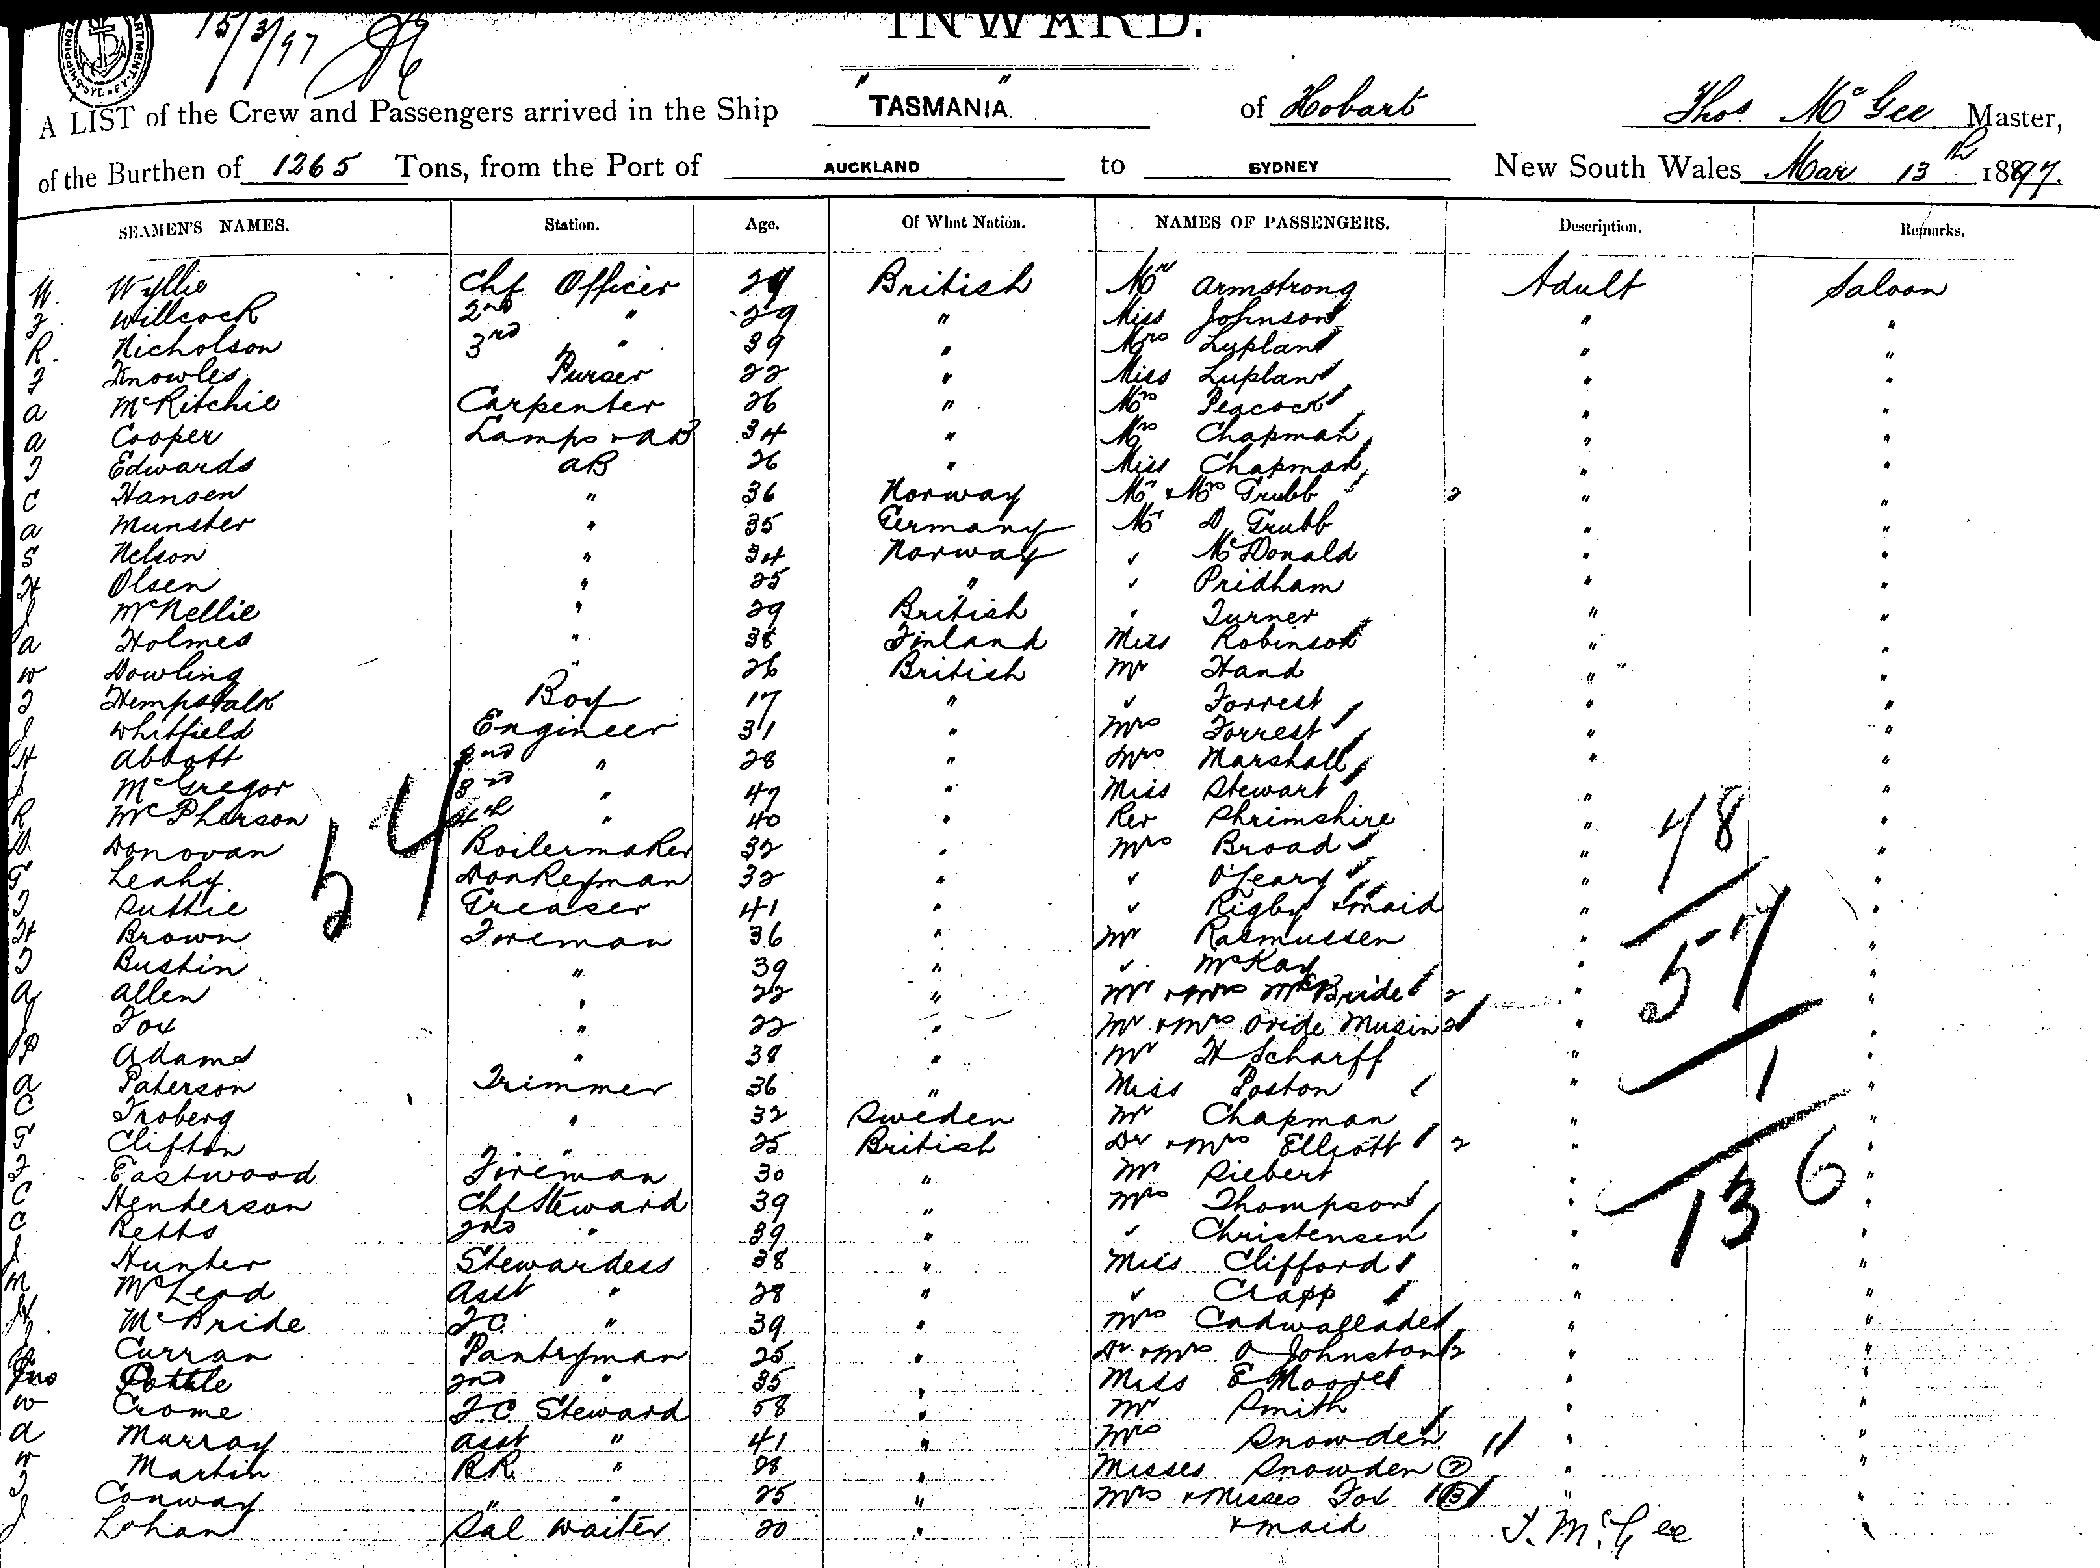 15/3/97
INWARD.
A LIST of the Crew and Passengers arrived in the Ship " TASMANIA. " of Hobart Thos Mc Gee Master,
of the Burthen of 1265 Tons, from the Port of AUCKLAND to SYDNEY New South Wales Mar 13th 1897.
SEAMEN'S NAMES. Station. Age. Of What Nation. NAMES OF PASSENGERS. Description. Remarks.
W. Wyllie Chf Officer 29 British Mr Armstrong Adult Saloon
F. Willcock 2nd " 29 " Miss Johnson " "
R. Nicholson 3rd " 39 " Mrs Lupland " "
F Knowles Purser 22 " Miss Lupland " "
A McRitchie Carpenter 26 " Mrs Peacock " "
A Cooper Lamps & AB 34 " Mrs Chapman " "
T Edwards AB 26 " Miss Chapman " "
C Hansen " 36 Norway Mr & Mrs Grubb 2 " "
A Munster " 35 Germany Mr D Grubb " "
S Nelson " 34 Norway " McDonald " "
H Olsen " 25 " " Pridham " "
J McNellie " 29 British " Turner " "
A Holmes " 38 Finland Miss Robinson " "
W Dowling " 26 British Mr Hand " "
T Hempstalk Boy 17 " " Forrest " "
J Whitfield Engineer 31 " Mrs Forrest " "
H Abbott 2nd " 28 " Mrs Marshall " "
J McGregor 3rd " 47 " Miss Stewart " "
R McPherson 4th " 40 " Rev Shrimshire " "
D. Donovan Boilermaker 32 " Mrs Broad " "
T Leahy Donkeyman 32 " " O'Leary " "
T Suttie Greaser 41 " " Rigby & maid " "
H Brown Foreman 36 " Mr Rasmussen " "
T Bustin " 39 " " McKay " "
A Allen " 22 " Mr & Mrs McBride 2 " "
J Fox " 22 " Mr & Mrs Ovide Musin 2 " "
P Adams " 38 " Mr H Scharff " "
A Paterson Trimmer 36 " Miss Poston " "
C Froberg " 32 Sweden Mr Chapman " "
T Clifton " 25 British Dr & Mrs Elliott 2 " "
F. Eastwood Fireman 30 " Mr Siebert " "
C Henderson Chf Steward 39 " Mrs Thompson " "
C Betts 2nd " 39 " " Christensen " "
J Hunter Stewardess 38 " Miss Clifford " "
M McLeod Asst " 28 " " Clapp " "
McBride FC " 39 " Mrs Cadwallader " "
Curran Pantryman 25 " Dr & Mrs O Johnston 2 " "
Jno Pottle 2nd " 35 " Miss E Moore " "
W Crome FC Steward 58 " Mr Smith " "
A Murray Asst " 41 " Mrs Snowden " "
W Martin RR " 28 " Misses Snowden 2 " "
T Conway " " 25 " Mrs & Misses Fox 3 " "
J Lohan Sal Waiter 20 " & maid T. McGee "
54
48
57
1
136